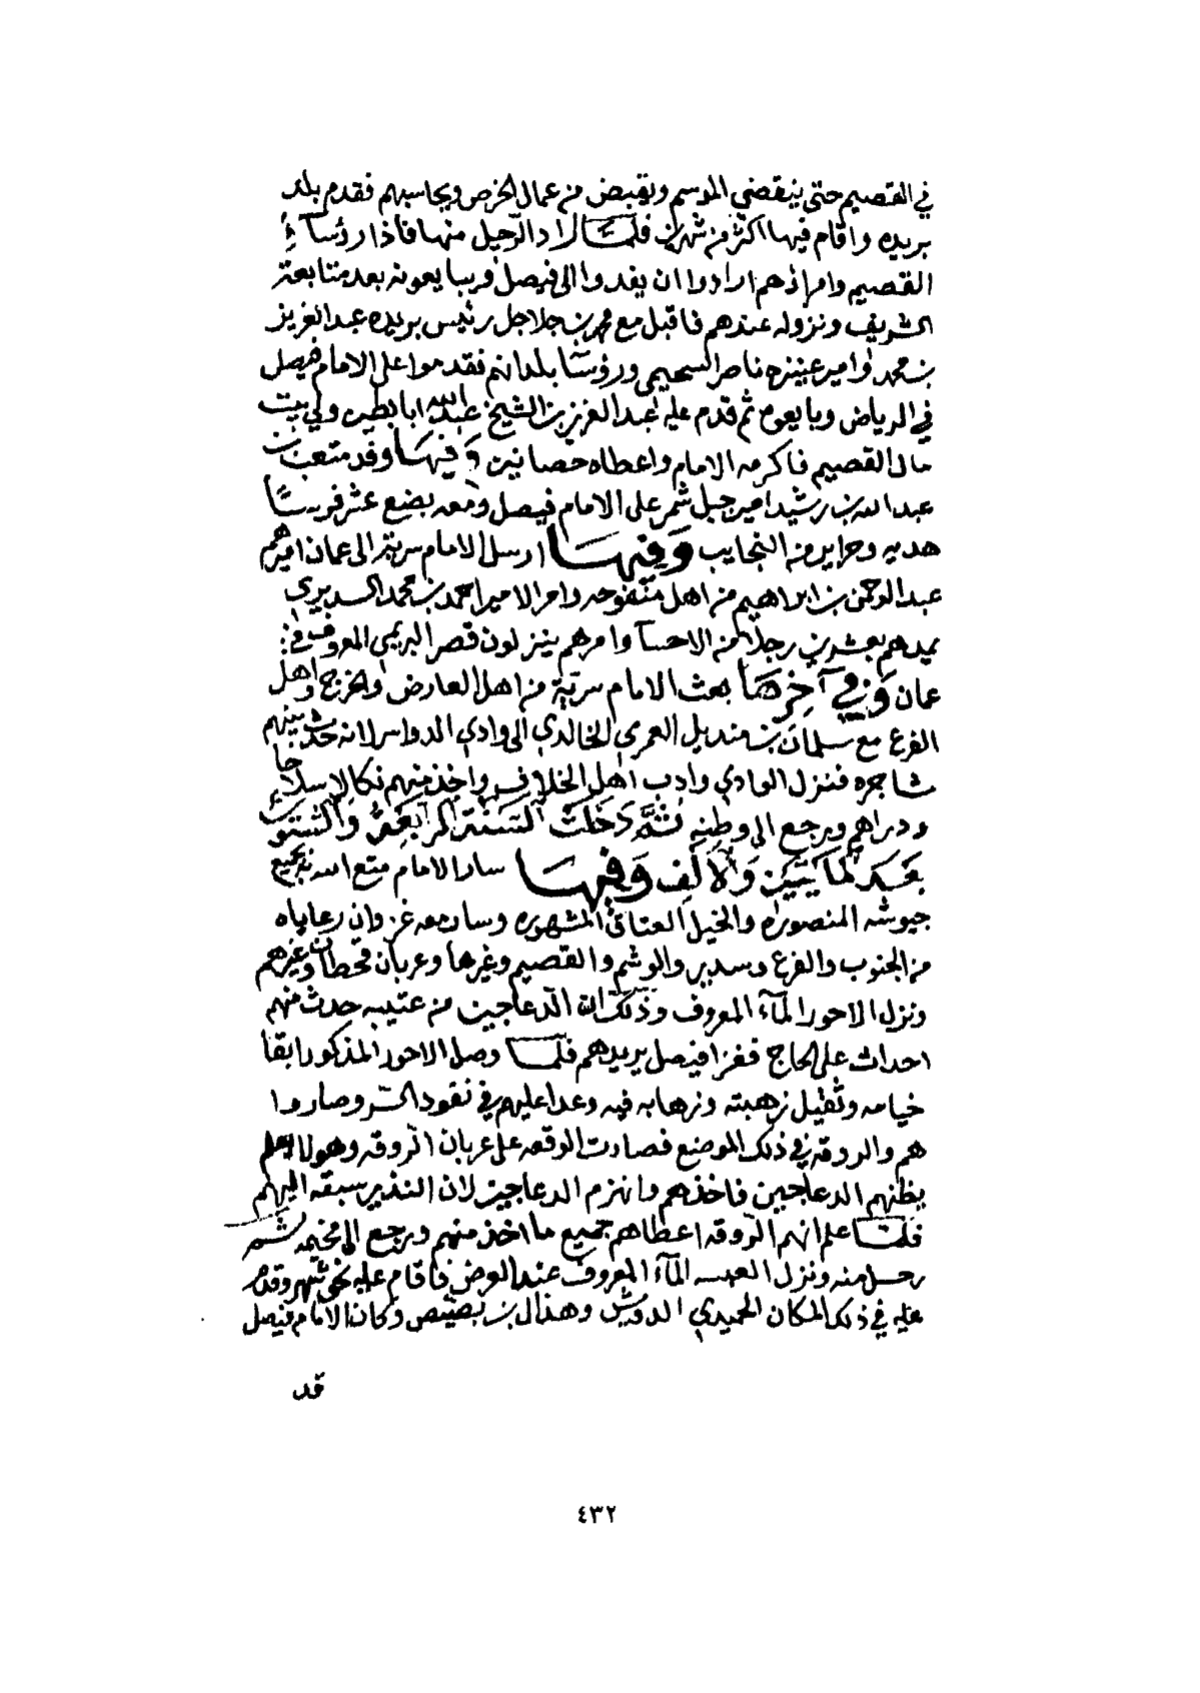 في القصيم حتى ينقضي الموسم ويقبض من عمال الخرص ويحاسبهم فقدم بلد
بريده واقام فيها اكثر من شهرين فلما اراد الرحيل منها فاذا رؤسآء
القصيم وامراؤهم ارادوا ان يفدوا الى فيصل ويبايعونه بعد متابعتهم
الشريف ونزوله عندهم فاقبل مع محمد بن جلاجل رئيس بريده عبدالعزيز
بن محمد وامير عنيزه ناصر السحيمي ورؤسآ بلدانهم فقدموا على الامام فيصل
في الرياض وبايعوه ثم قدم عليه عبدالعزيز بن الشيخ عبدالله ابابطين ولي بيت
مال القصيم فاكرمه الامام واعطاه حصانين وفيها وفد متعب بن
عبدالله بن رشيد امير جبل شمر على الامام فيصل ومعه بضع عشر فرسًا
هديه وحراير من النجايب وفيها ارسل الامام سرية الى عمان اميرهم
عبدالرحمن بن ابراهيم من اهل منفوحه وامر الامير احمد بن محمد السديري
يمدهم بعشرين رجلا من الاحسآ وامرهم ينزلون قصر البريمي المعروف في
عمان وفي آخرها بعث الامام سرية من اهل العارض والخرج واهل
الفرع مع سلمان بن منديل العمري الخالدي الى وادي الدواسر لانه حدث بينهم
شاجره فنزل الوادي وادب اهل الخلاف واخذ منهم نكالا سلاحا
ودراهم ورجع الى وطنه ثم دخلت السنة الرابعة والستون
بعد المايتين والالف وفيها سار الامام متع الله به بجميع
جيوشه المنصوره والخيل العتاق المشهوره وسار معه غزوان رعاياه
من الجنوب والفرع وسدير والوشم والقصيم وغيرها وعربان قحطان وغيرهم
ونزل الاحور المآء المعروف وذلك ان الدعاجين من عتيبه حدث منهم
احداث على الحاج فغزا فيصل يريدهم فلما وصل الاحور المذكور ابقا
خيامه وثقيل زهبته ونزهابه فيه وعدا عليهم في نقود السر وصاروا
هم والروقه في ذلك الموضع فصارت الوقعه على عربان الروقه وهولا اهلم
يظنهم الدعاجين فاخذهم وانهزم الدعاجين لان النذير سبقه اليهم
فلما علم انهم الروقه اعطاهم جميع ما اخذ منهم ورجع الى مخيمه ثم
رحل منه ونزل العبسه المآء المعروف عند العرض فاقام عليه نحو شهر وقدم
عليه في ذلك المكان الحميدي الدويش وهذال بن بصيص وكان الامام فيصل
قد
٤٣٢